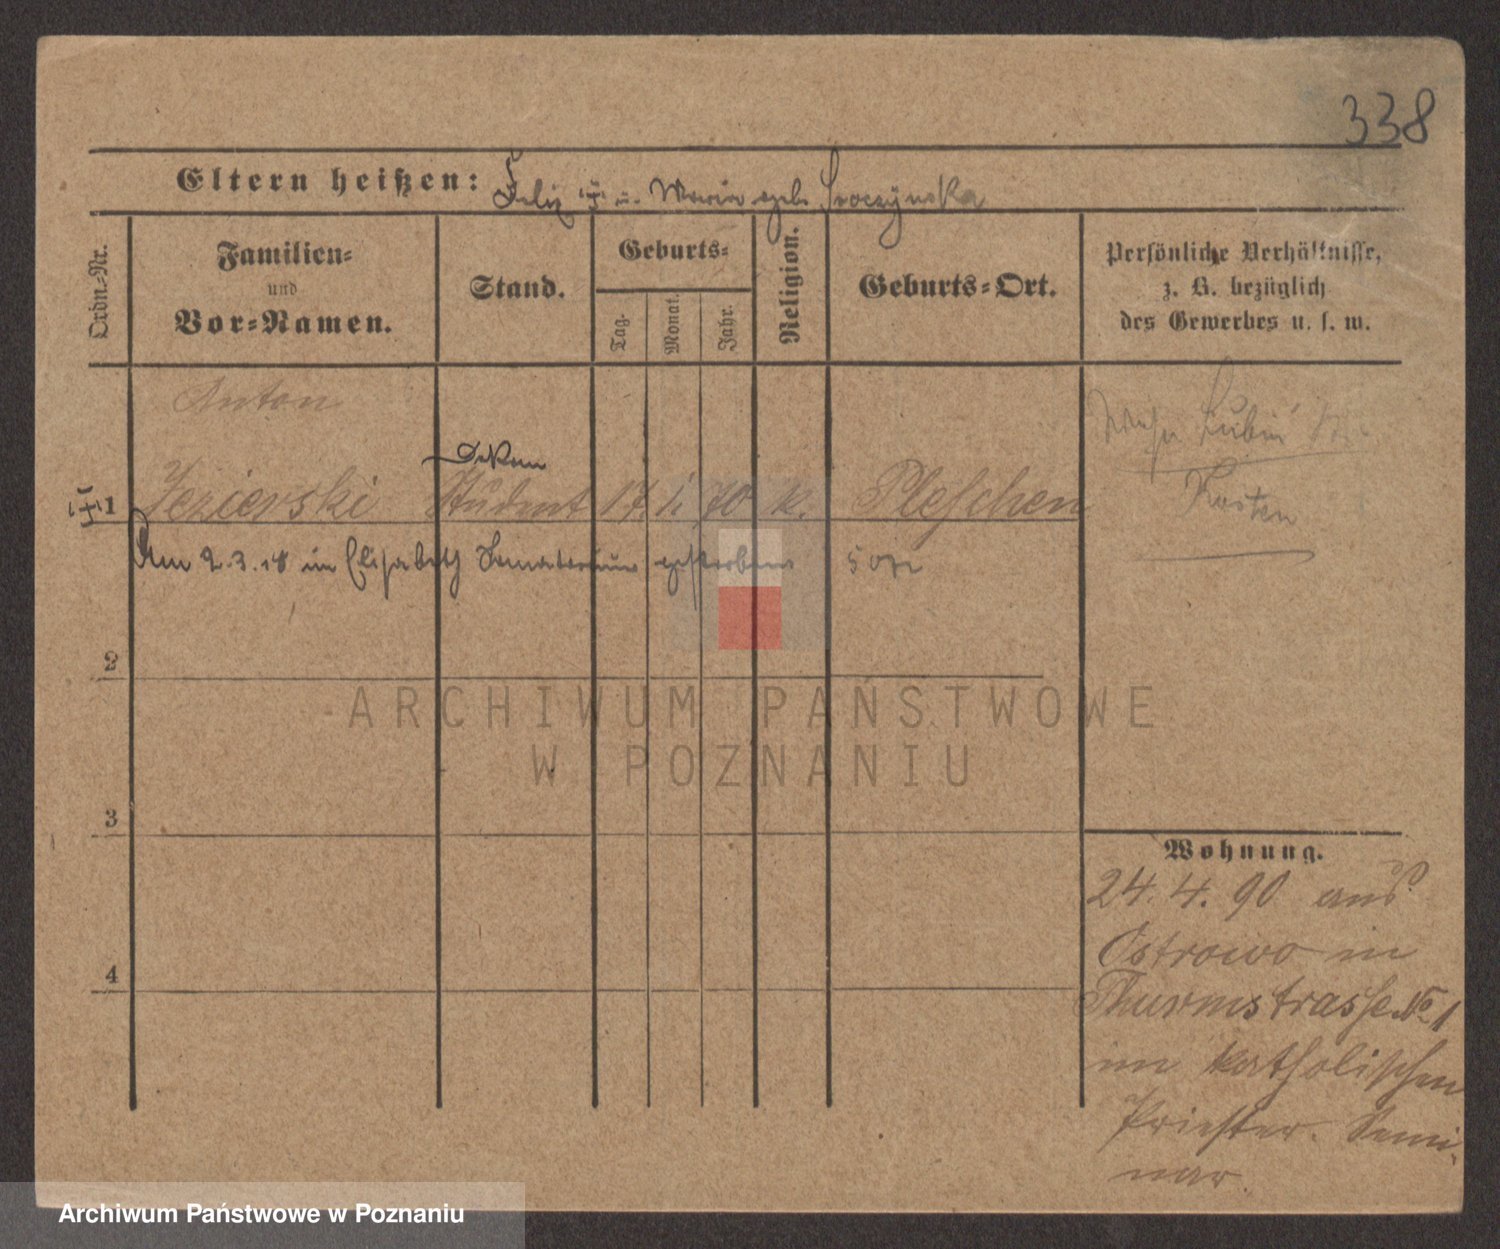 338
Eltern heißen: Felix † u. Maria geb. Sroczyńska
Ordn.-Nr.
Familien-
und
Vor-Namen.
Stand.
Geburts-
Tag.
Monat.
Jahr.
Religion.
Geburts-Ort.
Persönliche Verhältnisse,
z. B. bezüglich
des Gewerbes u. s. w.
Anton
Lubin
Dekan
† 1 Jezierski Student 17. 1. 70 k. Pleschen
Kosten
Am 2.3.18 im Elisabeth Sanatorium gestorben
2
ARCHIWUM PAŃSTWOWE
W POZNANIU
3
Wohnung.
24. 4. 90 aus
Ostrowo in
Thurmstrasse No 1
4
im katholischen
Priester-Semi-
nar.
Archiwum Państwowe w Poznaniu